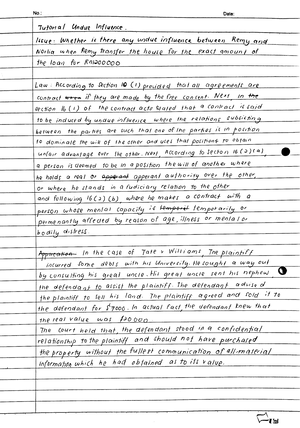 No :
Date:
Tutorial Undue Influence
Issue: Whether is there any undue influence between Remy and
Norba when Remy transfer the house for the exact amount of
the loan for RM200000
Law: According to Section 10 (1) provided that all agreements are
contract when if they are made by the free consent. Next in the
Section 16 (1) of the contract acts stated that a contract is said
to be induced by undue influence where the relations subsisting
between the parties are such that one of the parties is in position
to dominate the will of the other and uses that positions to obtain
unfair advantage over the other. Next, According to Section 16 (2)(a)
a person is deemed to be in a position the will of another where
he holds a real or apparent authority over the other,
or where he stands in a fiduciary relation to the other
and following 16(2)(b) where he makes a contract with a
person whose mental capacity is temporarily or
permanently affected by reason of age, illness or mental or
bodily distress.
Application In the case of Tate v Williams. The plaintiff
incurred some debts with his University. He sought a way out
by consulting his great uncle. His great uncle sent his nephew
the defendant to assist the plaintiff. The defendant advised
the plaintiff to sell his land. The plaintiff agreed and sold it to
the defendant for $7000. In actual fact, the defendant knew that
the real value was $20000
The court held that, the defendant stood in a confidential
relationship to the plaintiff and should not have purchased
the property without the fullest communication of all material
information which he had obtained as to its value.